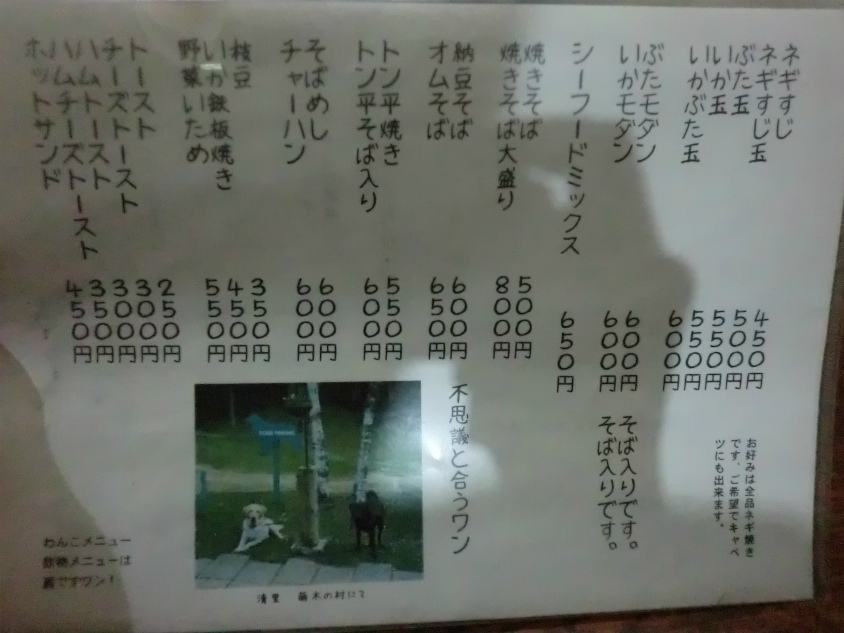 ネギすじ 450円
ネギすじ玉 500円
ぶた玉 550円
いか玉 550円
いかぶた玉 600円
お好みは全品ネギ焼き
です、ご希望でキャベ
ツにも出来ます。
ぶたモダン 600円 そば入りです。
いかモダン 600円 そば入りです。
シーフードミックス 650円
焼きそば 500円
焼きそば大盛り 800円
納豆そば 600円 不思議と合うワン
オムそば 650円
トン平焼き 550円
トン平そば入り 600円
そばめし 600円
チャーハン 600円
枝豆 350円
いか鉄板焼き 450円
野菜いため 550円
トースト 250円
チーズトースト 300円
ハムトースト 300円
ハムチーズトースト 350円
ホットサンド 450円
清里 萌木の村にて
わんこメニュー
飲物メニューは
裏ですワン！